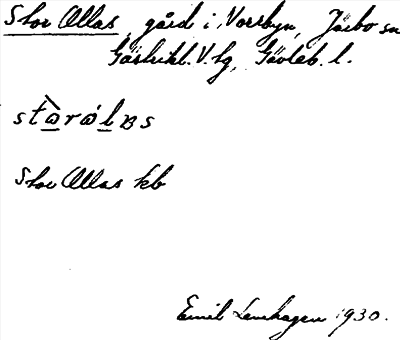 Stor Ollas, gård i Norrbyn, Järbo sn
Gästrikl. V. tg, Gävleb. l.
stàrólas
Stor Ollas kb
Emil Lenhagen 1930.